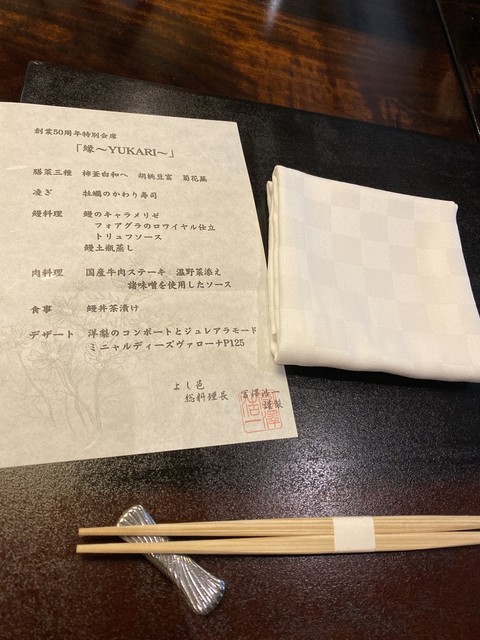 創業50周年特別会席
「縁～YUKARI～」
膳菜三種 柿釜白和へ 胡桃豆富 菊花蕪
凌ぎ 牡蠣のかわり寿司
鰻料理 鰻のキャラメリゼ
フォアグラのロワイヤル仕立
トリュフソース
鰻土瓶蒸し
肉料理 国産牛肉ステーキ 温野菜添え
諸味噌を使用したソース
食事 鰻丼茶漬け
デザート 洋梨のコンポートとジュレアラモード
ミニャルディーズヴァローナP125
よし邑
総料理長 冨澤浩一
謹製